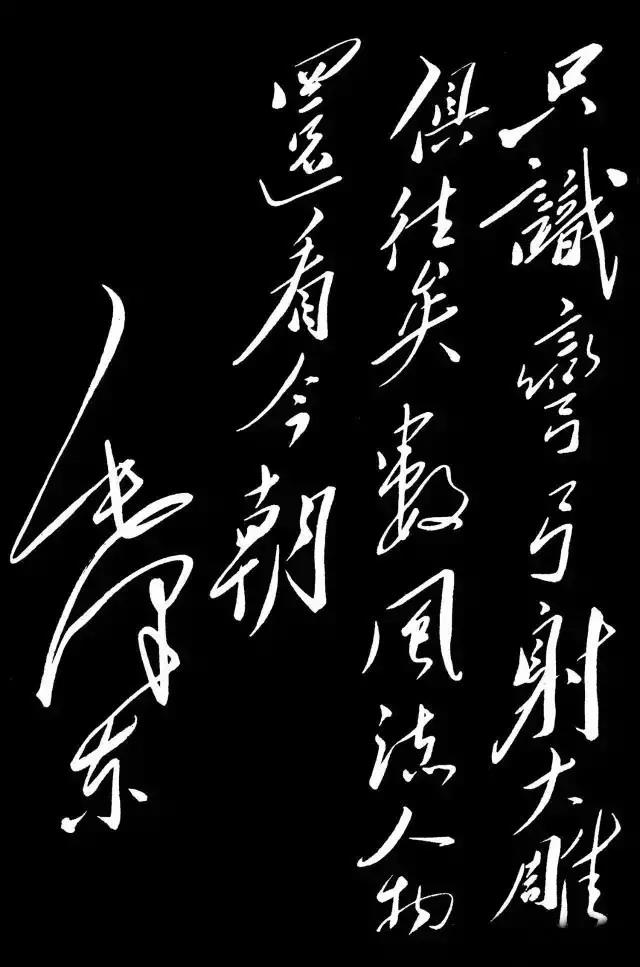 只識彎弓射大雕
俱往矣數風流人物
還看今朝
毛澤東